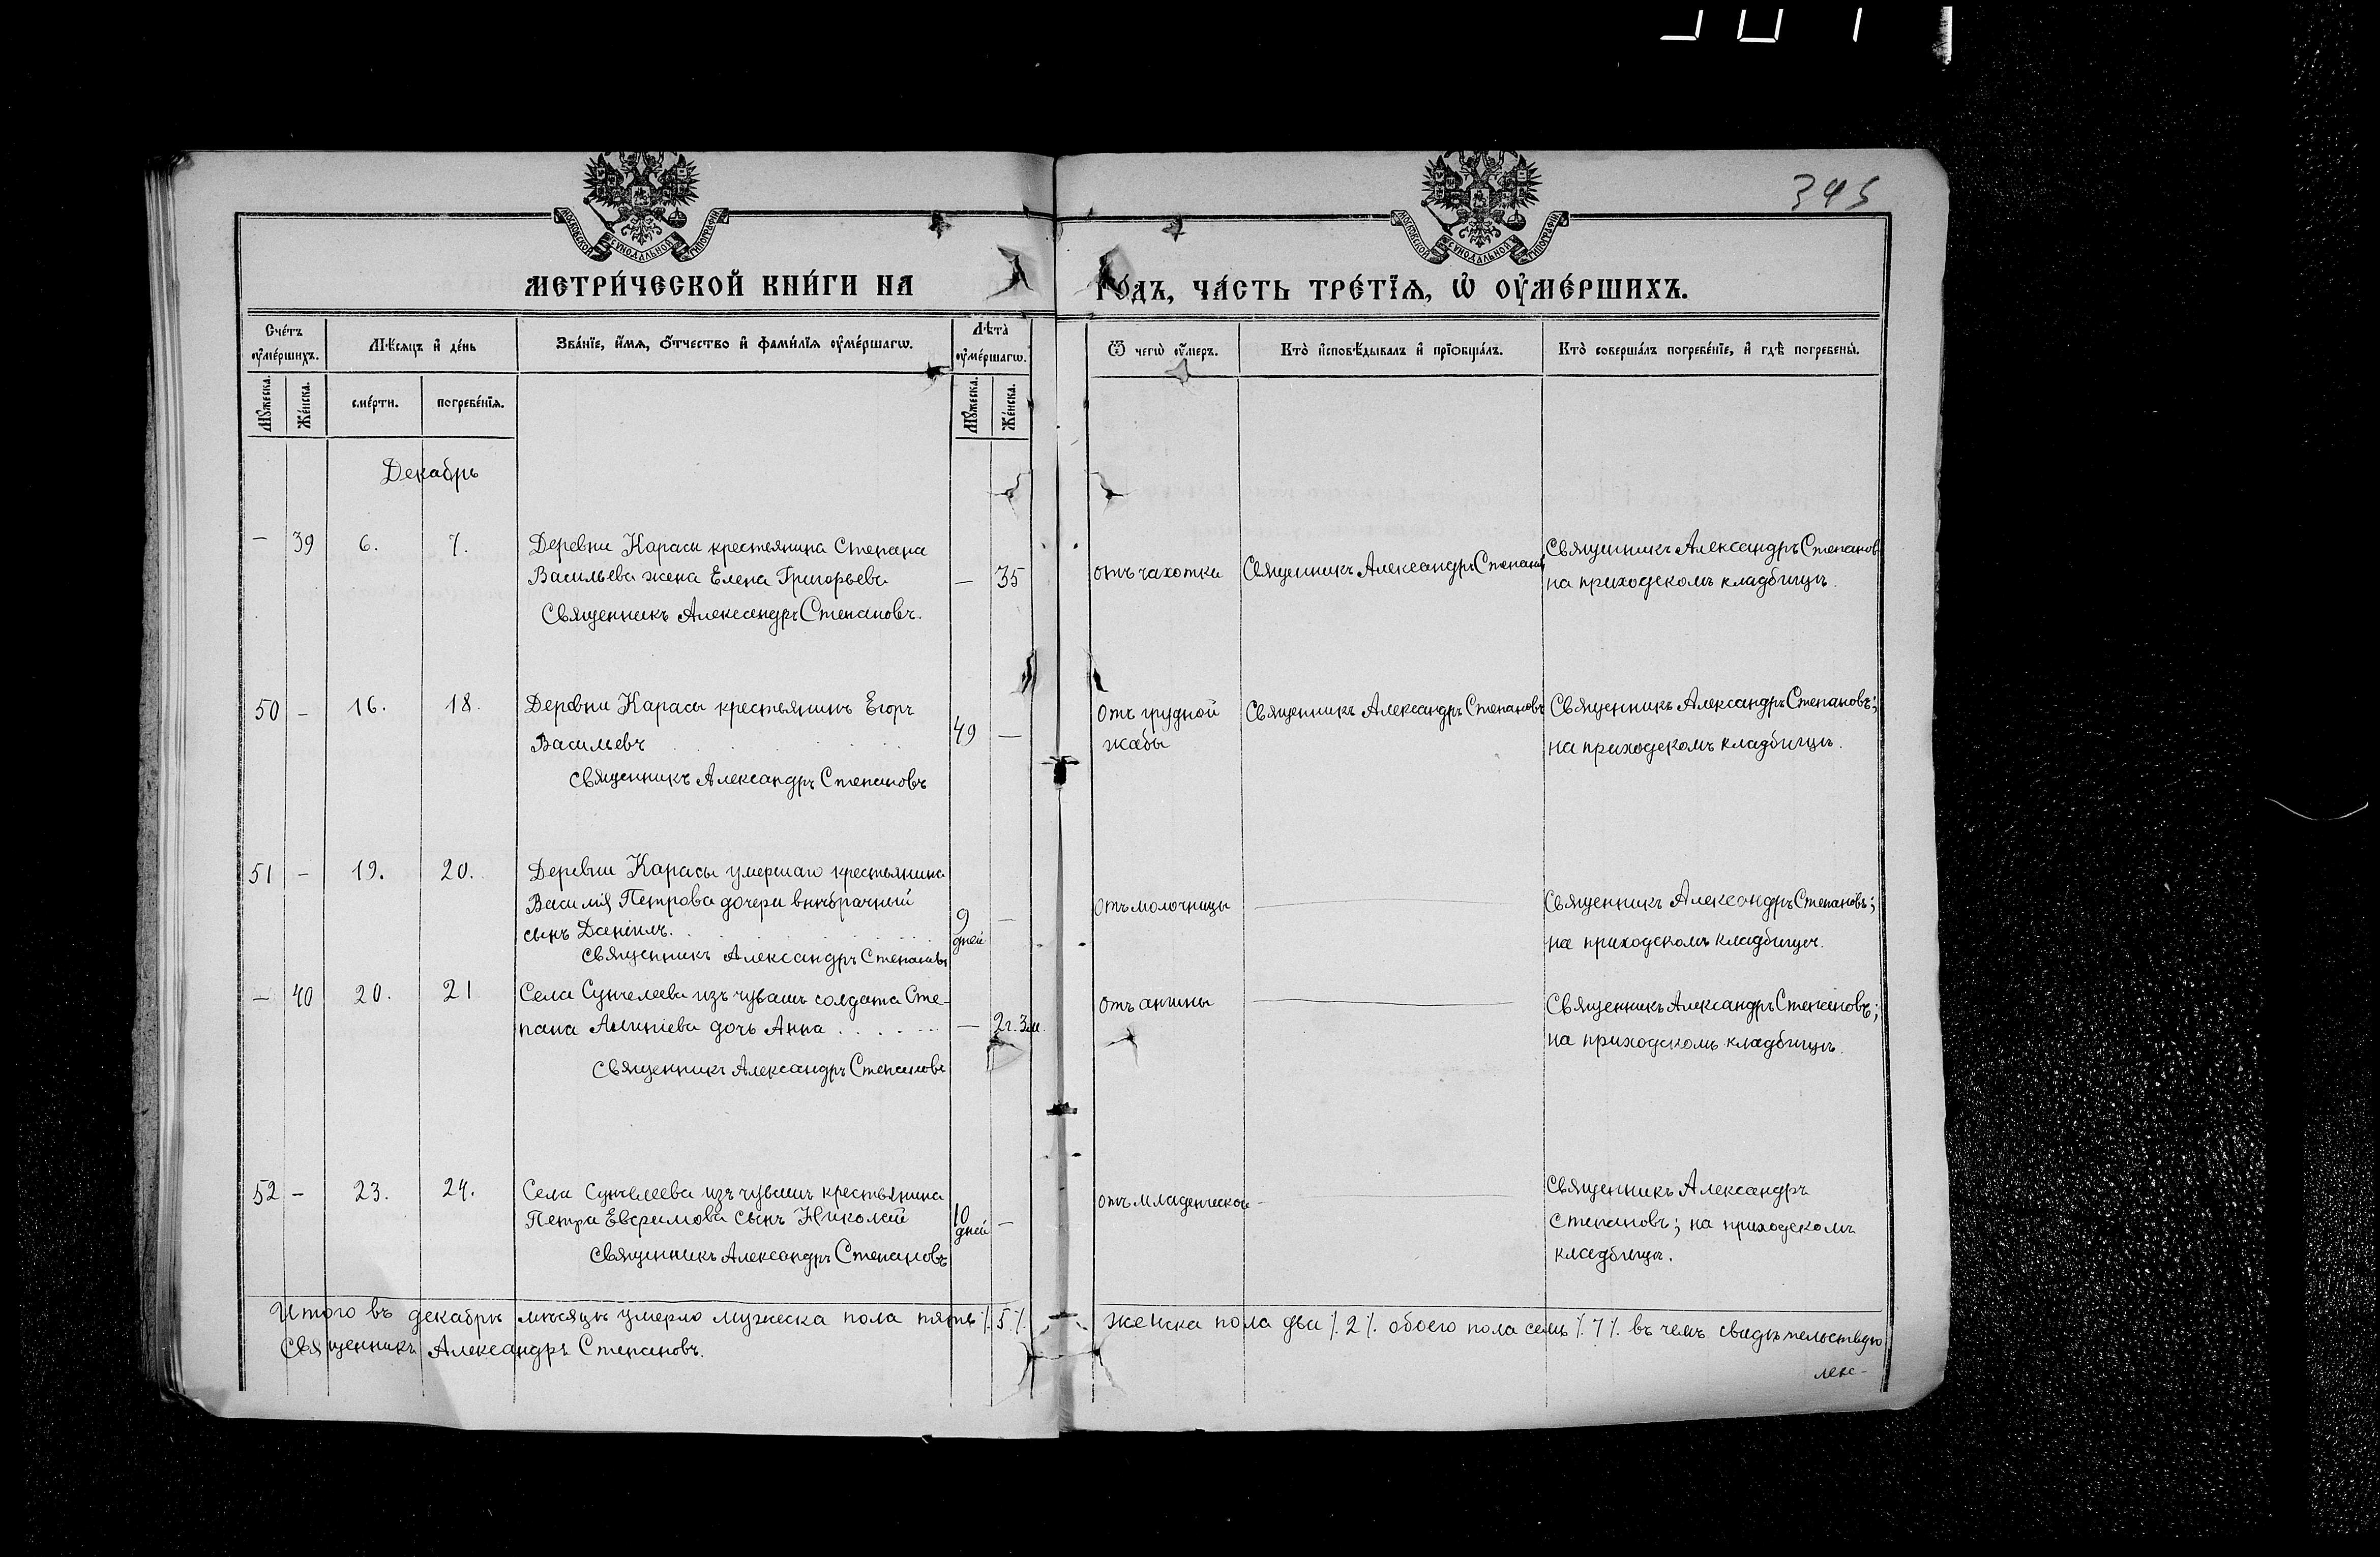 345
МОСКОВСКОЙ СУНОДАЛЬНОЙ ТИПОГРАФІИ
МОСКОВСКОЙ СУНОДАЛЬНОЙ ТИПОГРАФІИ
МЕТРИ́ЧЕСКОЙ КНИ́ГИ НА
ГО́ДЪ, ЧА́СТЬ ТРЕ́ТЇѦ, Ѡ҆ ОУ҆МЕ́РШИХЪ.
Сче́тъ оу҆ме́ршихъ.
Мѣ́сяцъ и҆ де́нь
Зва́нїе, и҆́мѧ, ѻ҆́тчество и҆ фами́лїѧ оу҆ме́ршагѡ.
Лѣта̀ оу҆ме́ршагѡ.
Ѿ чегѡ̀ оу҆́меръ.
Кто̀ и҆сповѣ́дывалъ и҆ прїѡбща́лъ.
Кто̀ соверша́лъ погребе́нїе, и҆ гдѣ̀ погребены̀.
Мꙋ́жеска.
Же́нска.
сме́рти.
погребе́нїѧ.
Мꙋ́жеска.
Же́нска.
Декабрь
— 39 6. 7. Деревни Карасы крестьянина Степана
Васильева жена Елена Григорьева — 35
Священникъ Александръ Степановъ.
отъ чахотки Священникъ Александръ Степановъ
Священникъ Александръ Степановъ
на приходскомъ кладбищѣ.
50 — 16. 18. Деревни Карасы крестьянинъ Егоръ
Васильевъ 49 —
Священникъ Александръ Степановъ
Отъ грудной Священникъ Александръ Степановъ Священникъ Александръ Степановъ;
жабы на приходскомъ кладбищѣ.
51 — 19. 20. Деревни Карасы умершаго крестьянина
Василія Петрова дочери внѣбрачный
сынъ Даніилъ. 9 дней —
Священникъ Александръ Степановъ
отъ молочницы Священникъ Александръ Степановъ;
на приходскомъ кладбищѣ.
— 40 20. 21 Села Сунчелеева изъ чувашъ солдата Сте-
пана дочь Анна — 2г. 3м.
Священникъ Александръ Степановъ
отъ ангины Священникъ Александръ Степановъ;
на приходскомъ кладбищѣ.
52 — 23. 24. Села Сунчелеева изъ чувашъ крестьянина
Петра Евфимова сынъ Николай 10 дней —
Священникъ Александръ Степановъ
отъ младенческой Священникъ Александръ
Степановъ; на приходскомъ
кладбищѣ.
Итого въ декабрѣ мѣсяцѣ умерло мужеска пола пять ⁒ 5 ⁒ женска пола два ⁒ 2 ⁒ обоего пола семь ⁒ 7 ⁒ въ чемъ свидѣтельствую
Священникъ Александръ Степановъ.